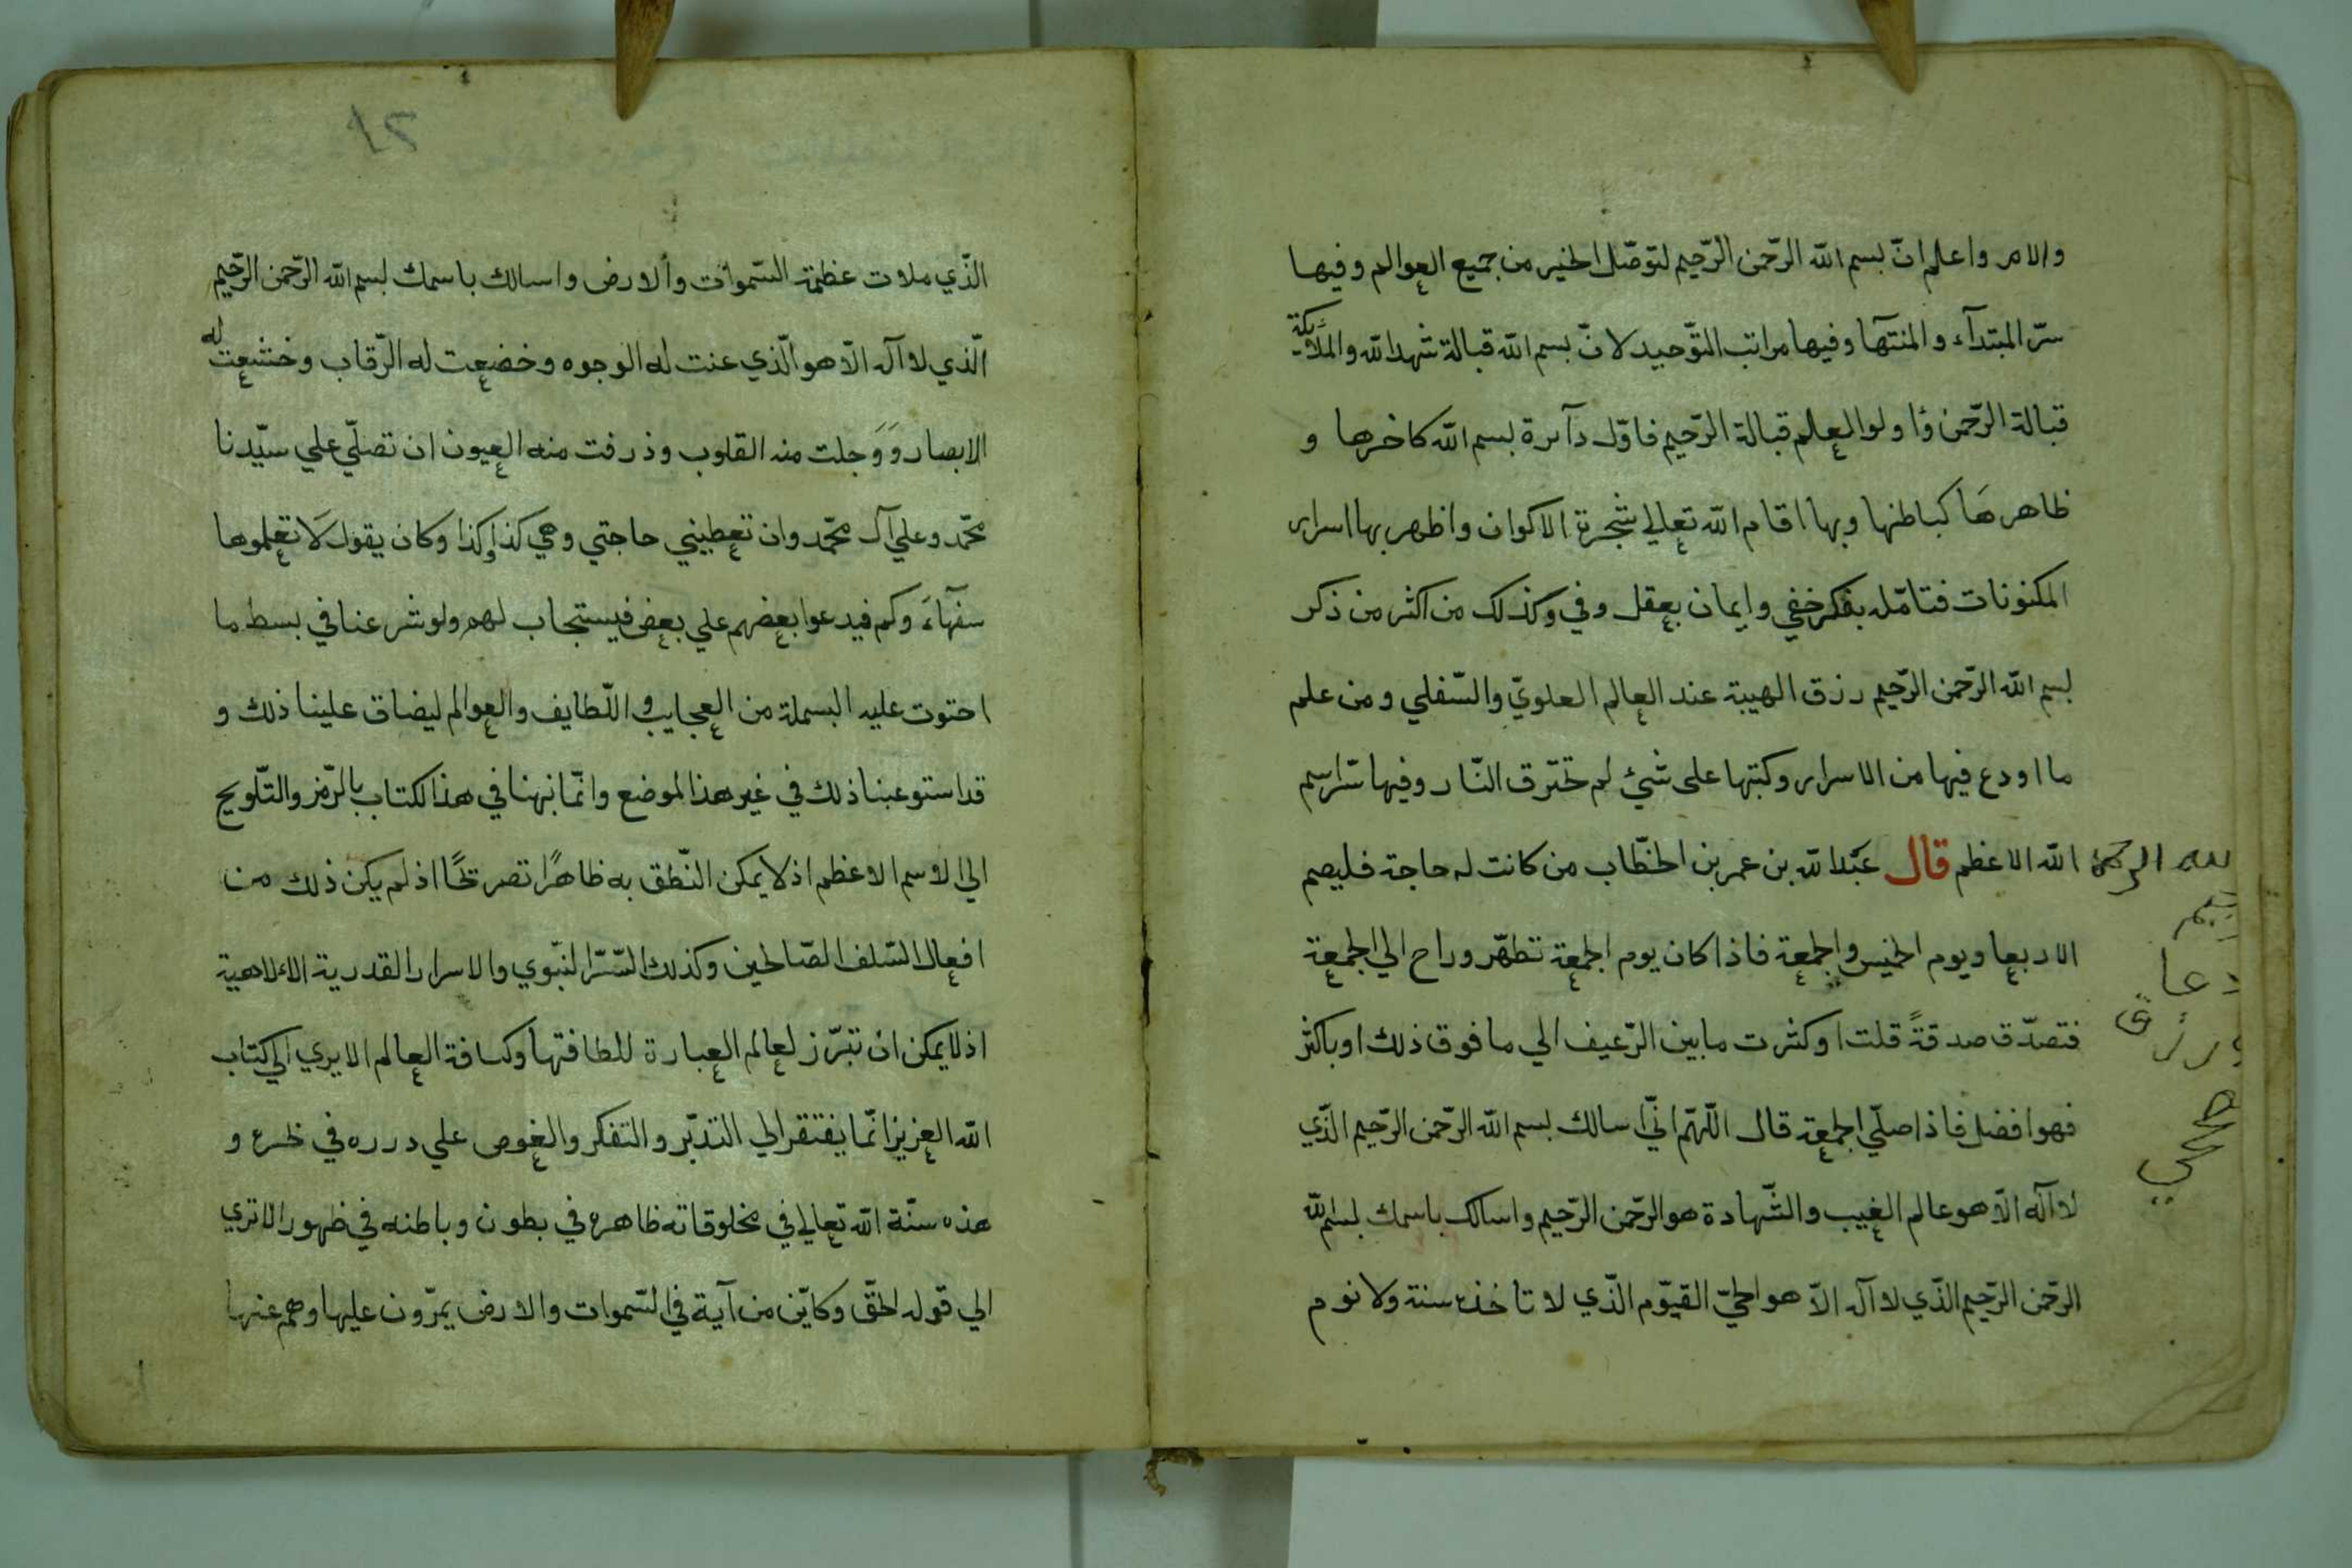 والامر واعلم انّ بسم الله الرّحمن الرّحيم لتوصّل الخير من جميع العوالم وفيها
سرّ المبتدآء والمنتهآ وفيها مراتب التّوحيد لانّ بسم الله قبالة شهد الله والملآئكة
قبالة الرّحمن وُاولوا العلم قبالة الرّحيم فاوّل دآئرة بسم الله كاخرها و
ظاهرهَا كباطنها وبها اقام الله تعالي شجرة الاكوان واظهر بها اسرار
المكنونات فتامّله بفكر خفي وايمان بعقل وفي وكذلك من اكثر من ذكر
بسم الله الرّحمن الرّحيم رزق الهيبة عند العالم العلويّ والسّفلي ومن علم
ما اودع فيها من الاسرار وكتبها على شئ لم تحترق النّار وفيها سّراسم
الله الاعظم قال عبد الله بن عمر بن الخطّاب من كانت له حاجة فليصم
الاربعا ويوم الخميس والجمعة فاذا كان يوم الجمعة تطهّر وراح الي الجمعة
فتصدّق صدقةً قلت او كثرت ما بين الرّغيف الي ما فوق ذلك او باكثر
فهو افضل فاذا صلّي الجمعة قال اللّهمّ انّي اسالك بسم الله الرّحمن الرّحيم الذّي
لا آله الّا هو عالم الغيب والشّهادة هو الرّحمن الرّحيم واسالك باسمك بسم الله
الرّحمن الرّحيم الذّي لا آله الاّ هو الحيّ القيّوم الذّي لا تاخذه سنة ولا نوم
الله الرحمن
دعا
رزق
الذّي ملات عظمة السّموات وألارض واسالك باسمك بسم الله الرّحمن الرّحيم
الّذي لا آله الّا هو الّذي عنت له الوجوه وخضعت له الرّقاب وخشعت له
الابصار وَوَجلت منه القلوب وذرفت منه العيون ان تصلّي علي سيّدنا
محّمد وعلي آل محّمد وان تعطيني حاجتي وهي كذا وكذا وكان يقول لَا تعلموها
سفهآءَ وكم فيدعوا بعضهم علي بعض فيستجاب لهم ولو شرعنا في بسط ما
احتوت عليه البسملة من العجايب واللّطايف والعوالم ليضاق علينا ذلك و
قد استوعبنا ذلك في غير هذا الموضع وانّما نبهنا في هذا لكتاب بالرّمز والتّلويح
الي الاسم الاعظم اذ لا يمكن النّطق به ظاهرًا تصريحًا اذ لم يكن ذلك من
افعال السّلف الصّالحين وكذلك السّرّ النّبوي والاسرار القدرية الالاهية
اذ لا يمكن ان تبرّز لعالم العبارة للطافتها وكسافة العالم الا يري الي كتاب
الله العزيز انّما يفتقر الي التدبّر والتفكر والغوص علي درره في و
هذه سنّة الله تعالي في مخلوقاته ظاهره في بطون وباطنه في ظهور الا تري
الي قوله الحقّ وكايّن من آية في السّموات والارض يمرّون عليها وهم عنها